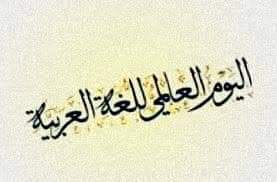 اليوم العالمي للغة العربية